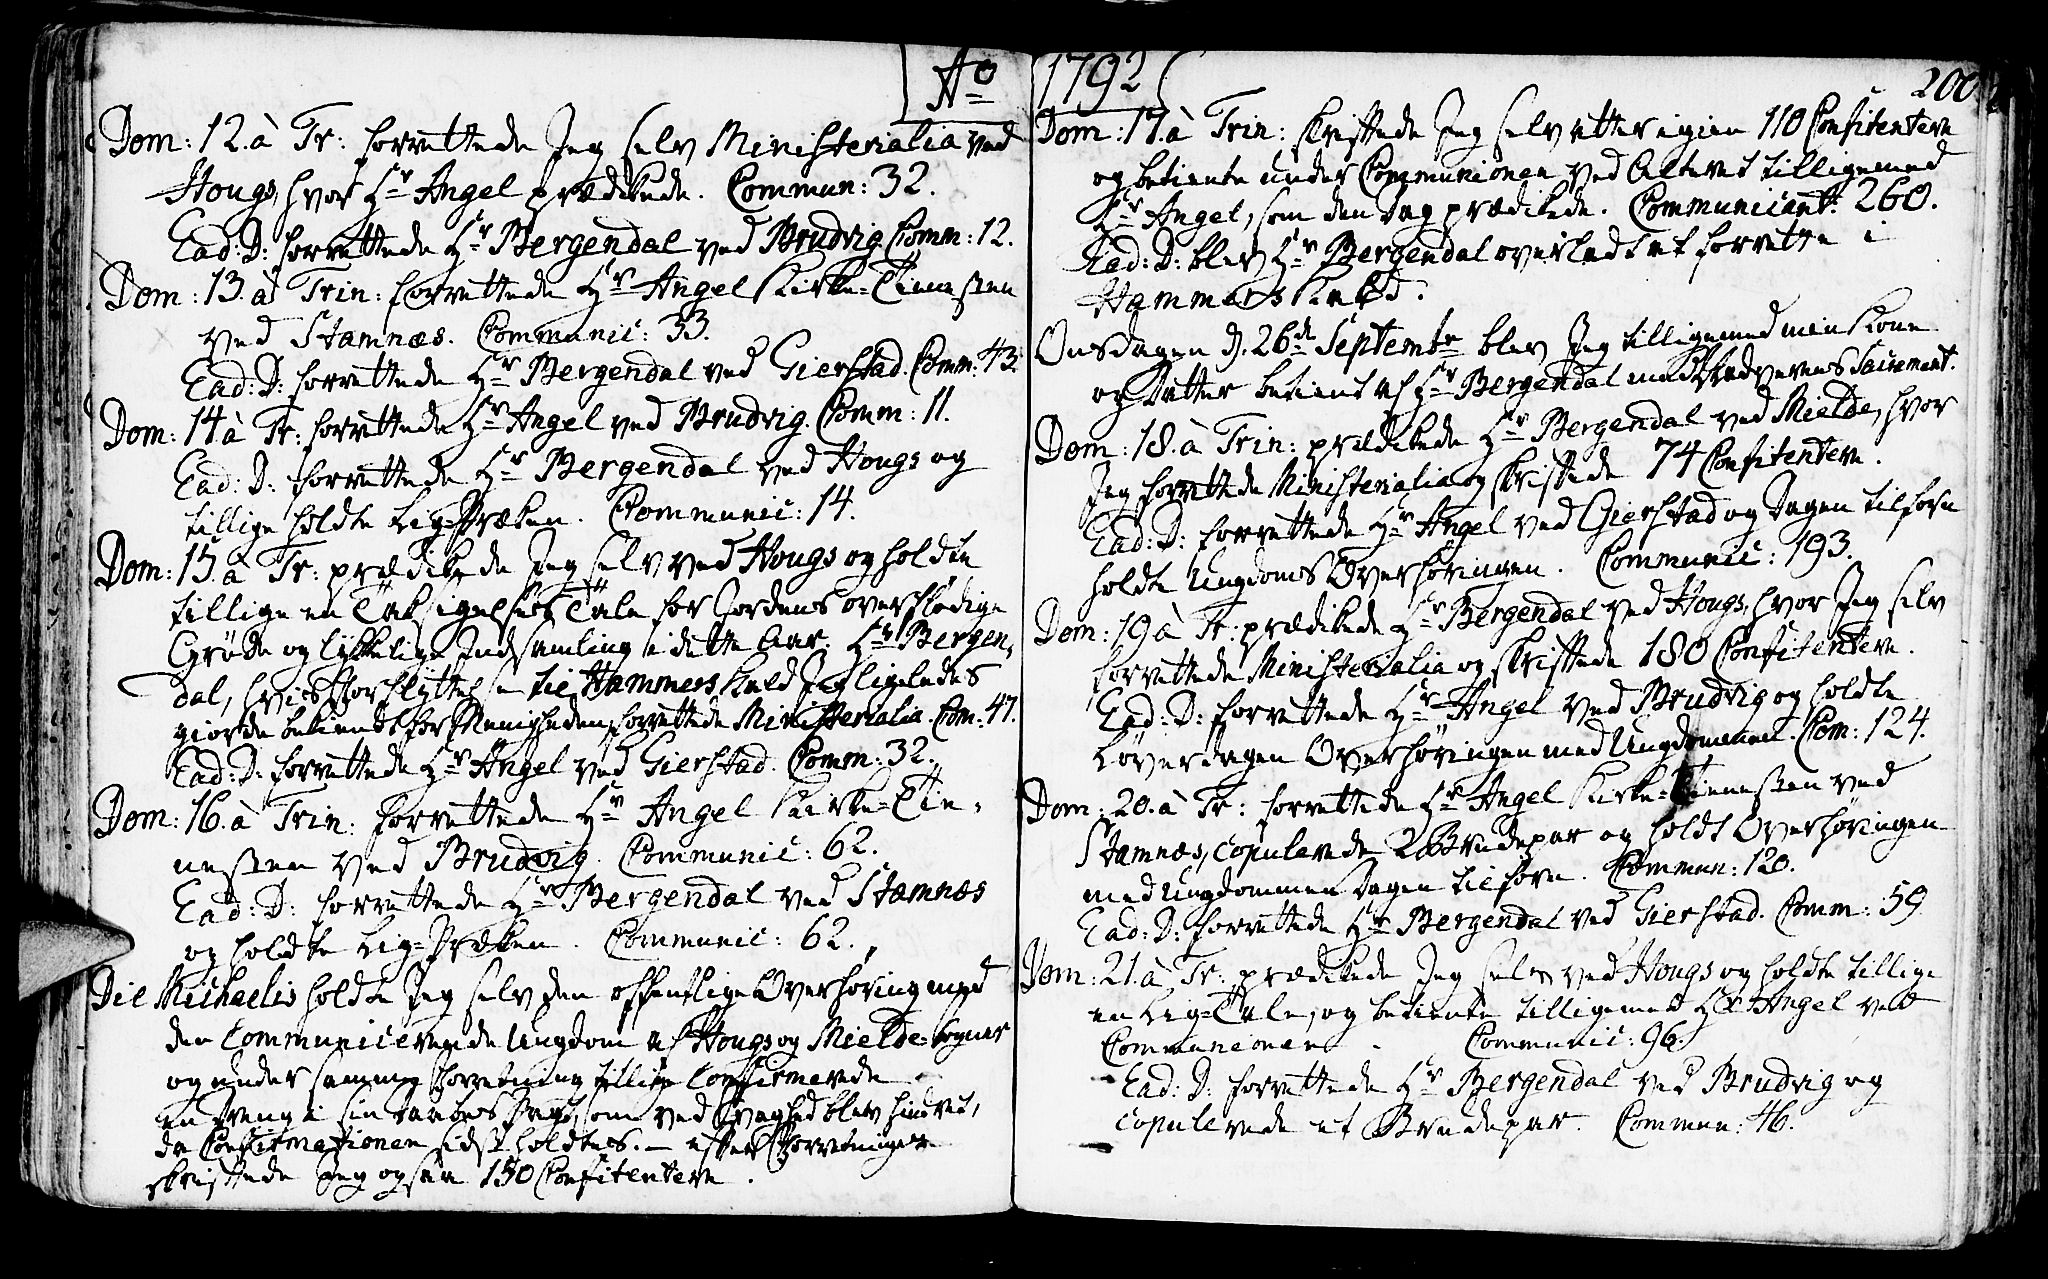 Ao 1792
Dom: 12. à Tr: forrettede Jeg selv Ministerialia ved
Hougs, hvor Hr Angel prædikede. Commun: 32.
Ead: D: forrettede Hr Bergendal ved Brudvig. Comm: 12.
Dom: 13. à Trin: forrettede Hr Angel Kirke-Tienesten
ved Stamnæs. Communic: 33.
Ead: D: forrettede Hr Bergendal ved Gierstad. Comm: 43.
Dom: 14 à Tr: forrettede Hr Angel ved Brudvig. Comm: 11.
Ead: D: forrettede Hr Bergendal ved Hougs og
tillige holdte Lig-Præken. Communic: 14.
Dom: 15. à Tr: prædikede Jeg selv ved Hougs og holdte
tillige en Taksigelses Tale for Jordens overflødige
Grøde og lykkelige Indsamling i dette Aar. Hr Bergen,
dal, hvis Forflyttelse til Hammers Kald Jeg ligeledes
giorde bekiendt for Menigheden, forrettede Ministerialia. Com: 47.
Ead: D: forrettede Hr Angel ved Gierstad. Comm: 32.
Dom: 16. à Trin: forrettede Hr Angel Kirke-Tie,
nesten ved Brudvig. Communic: 62.
Ead: D: forrettede Hr Bergendal ved Stamnæs
og holdte Lig-Præken. Communic: 62.
Die Michaelis holdte Jeg selv den offentlige Overhøring med
den communicerende Ungdom af Hougs og Mielde-Sogner
og under samme Forretning tillige confirmerede
en Dreng i sin Daabes Pagt, som ved Svaghed blev hindret,
da Confirmationen sidst holdtes. – efter Forretningen
skriftede Jeg ogsaa 150 Confitentere.
200
Dom: 17. à Trin: skriftede Jeg selv atter igien 110 Confitentere
og betiente under Communionen ved Alteret tilligemed
Hr Angel, som den Dag prædikede. Communicant: 260.
Ead: D: blev Hr Bergendal overladt at forrette i
Hammers Kald.
Onsdagen d. 26de Septembr blev Jeg tilligemed min Kone
og Datter betient af Hr Bergendal med Nadverens Sacrament.
Dom: 18. à Trin: prædikede Hr Bergendal ved Mielde, hvor
Jeg forrettede Ministerialia og skriftede 74 Confitentere.
Ead: D: forrettede Hr Angel ved Gierstad og Dagen tilforn
holdte Ungdoms Overhøringen. Communic: 193.
Dom: 19 à Tr: prædikede Hr Bergendal ved Hougs, hvor Jeg selv
forrettede Ministerialia og skriftede 180 Confitentere.
Ead: D: forrettede Hr Angel ved Brudvig og holdte
Løverdagen Overhøringen med Ungdommen. Com: 124.
Dom: 20. à Tr: forrettede Hr Angel Kirke-Tienesten ved
Stamnæs, copulerede 2 Brudepar og holdt Overhøringen
med Ungdommen Dagen tilforn. Commun: 120.
Ead: D: forrettede Hr Bergendal ved Gierstad. Comm: 59
Dom: 21. à Tr: prædikede Jeg selv ved Hougs og holdte tillige
en Lig-Tale, og betiente tilligemed Hr Angel ved
Communionen. Communic: 96.
Ead: D: forrettede Hr Bergendal ved Brudvig og
copulerede et Brudepar. Commun: 46.